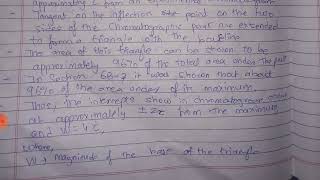 approximating L from an experimental chromatogram
Tangent on the inflection point on the two
sides of the chromatographic peak are extended
to form a triangle with the baseline
The area of this triangle can be shown to be
approximately 96% of the total area under the peak
In Section 6B-2 it was shown that about
96% of the area under of its maximum.
Thus, the intercepts show in chromatogram occur
at approximately ± 2τ from the maximum,
and W = 4τ,
where,
W = magnitude of the base of the triangle